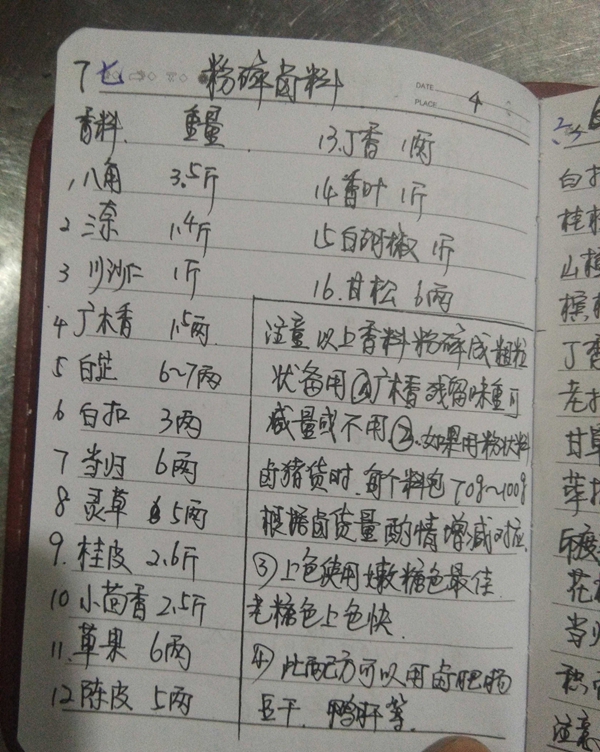 7 七 粉碎卤料
DATE
PLACE 4
香料 重量
1, 八角 3.5斤
2 三奈 1.4斤
3 川沙仁 1斤
4 广木香 1.5两
5 白芷 6~7两
6 白扣 3两
7 当归 6两
8 灵草 5两
9. 桂皮 2.6斤
10 小茴香 2.5斤
11. 草果 6两
12 陈皮 5两
13.丁香 1两
14 香叶 1斤
15 白胡椒 1斤
16.甘松 6两
注意 以上香料粉碎成粗粒
状备用 ①广木香残留味重可
减量或不用 ②.如果用粉状料
卤猪货时.每个料包70g~100g
根据卤货量酌情增减对应.
③上色使用嫩糖色最佳
老糖色上色快.
④ 此配方可以用卤肥肠
豆干. 鸭肝等.
白扣
桂
山
槟
丁香
老扣
甘草
荜
印度
花
当归
积
注意